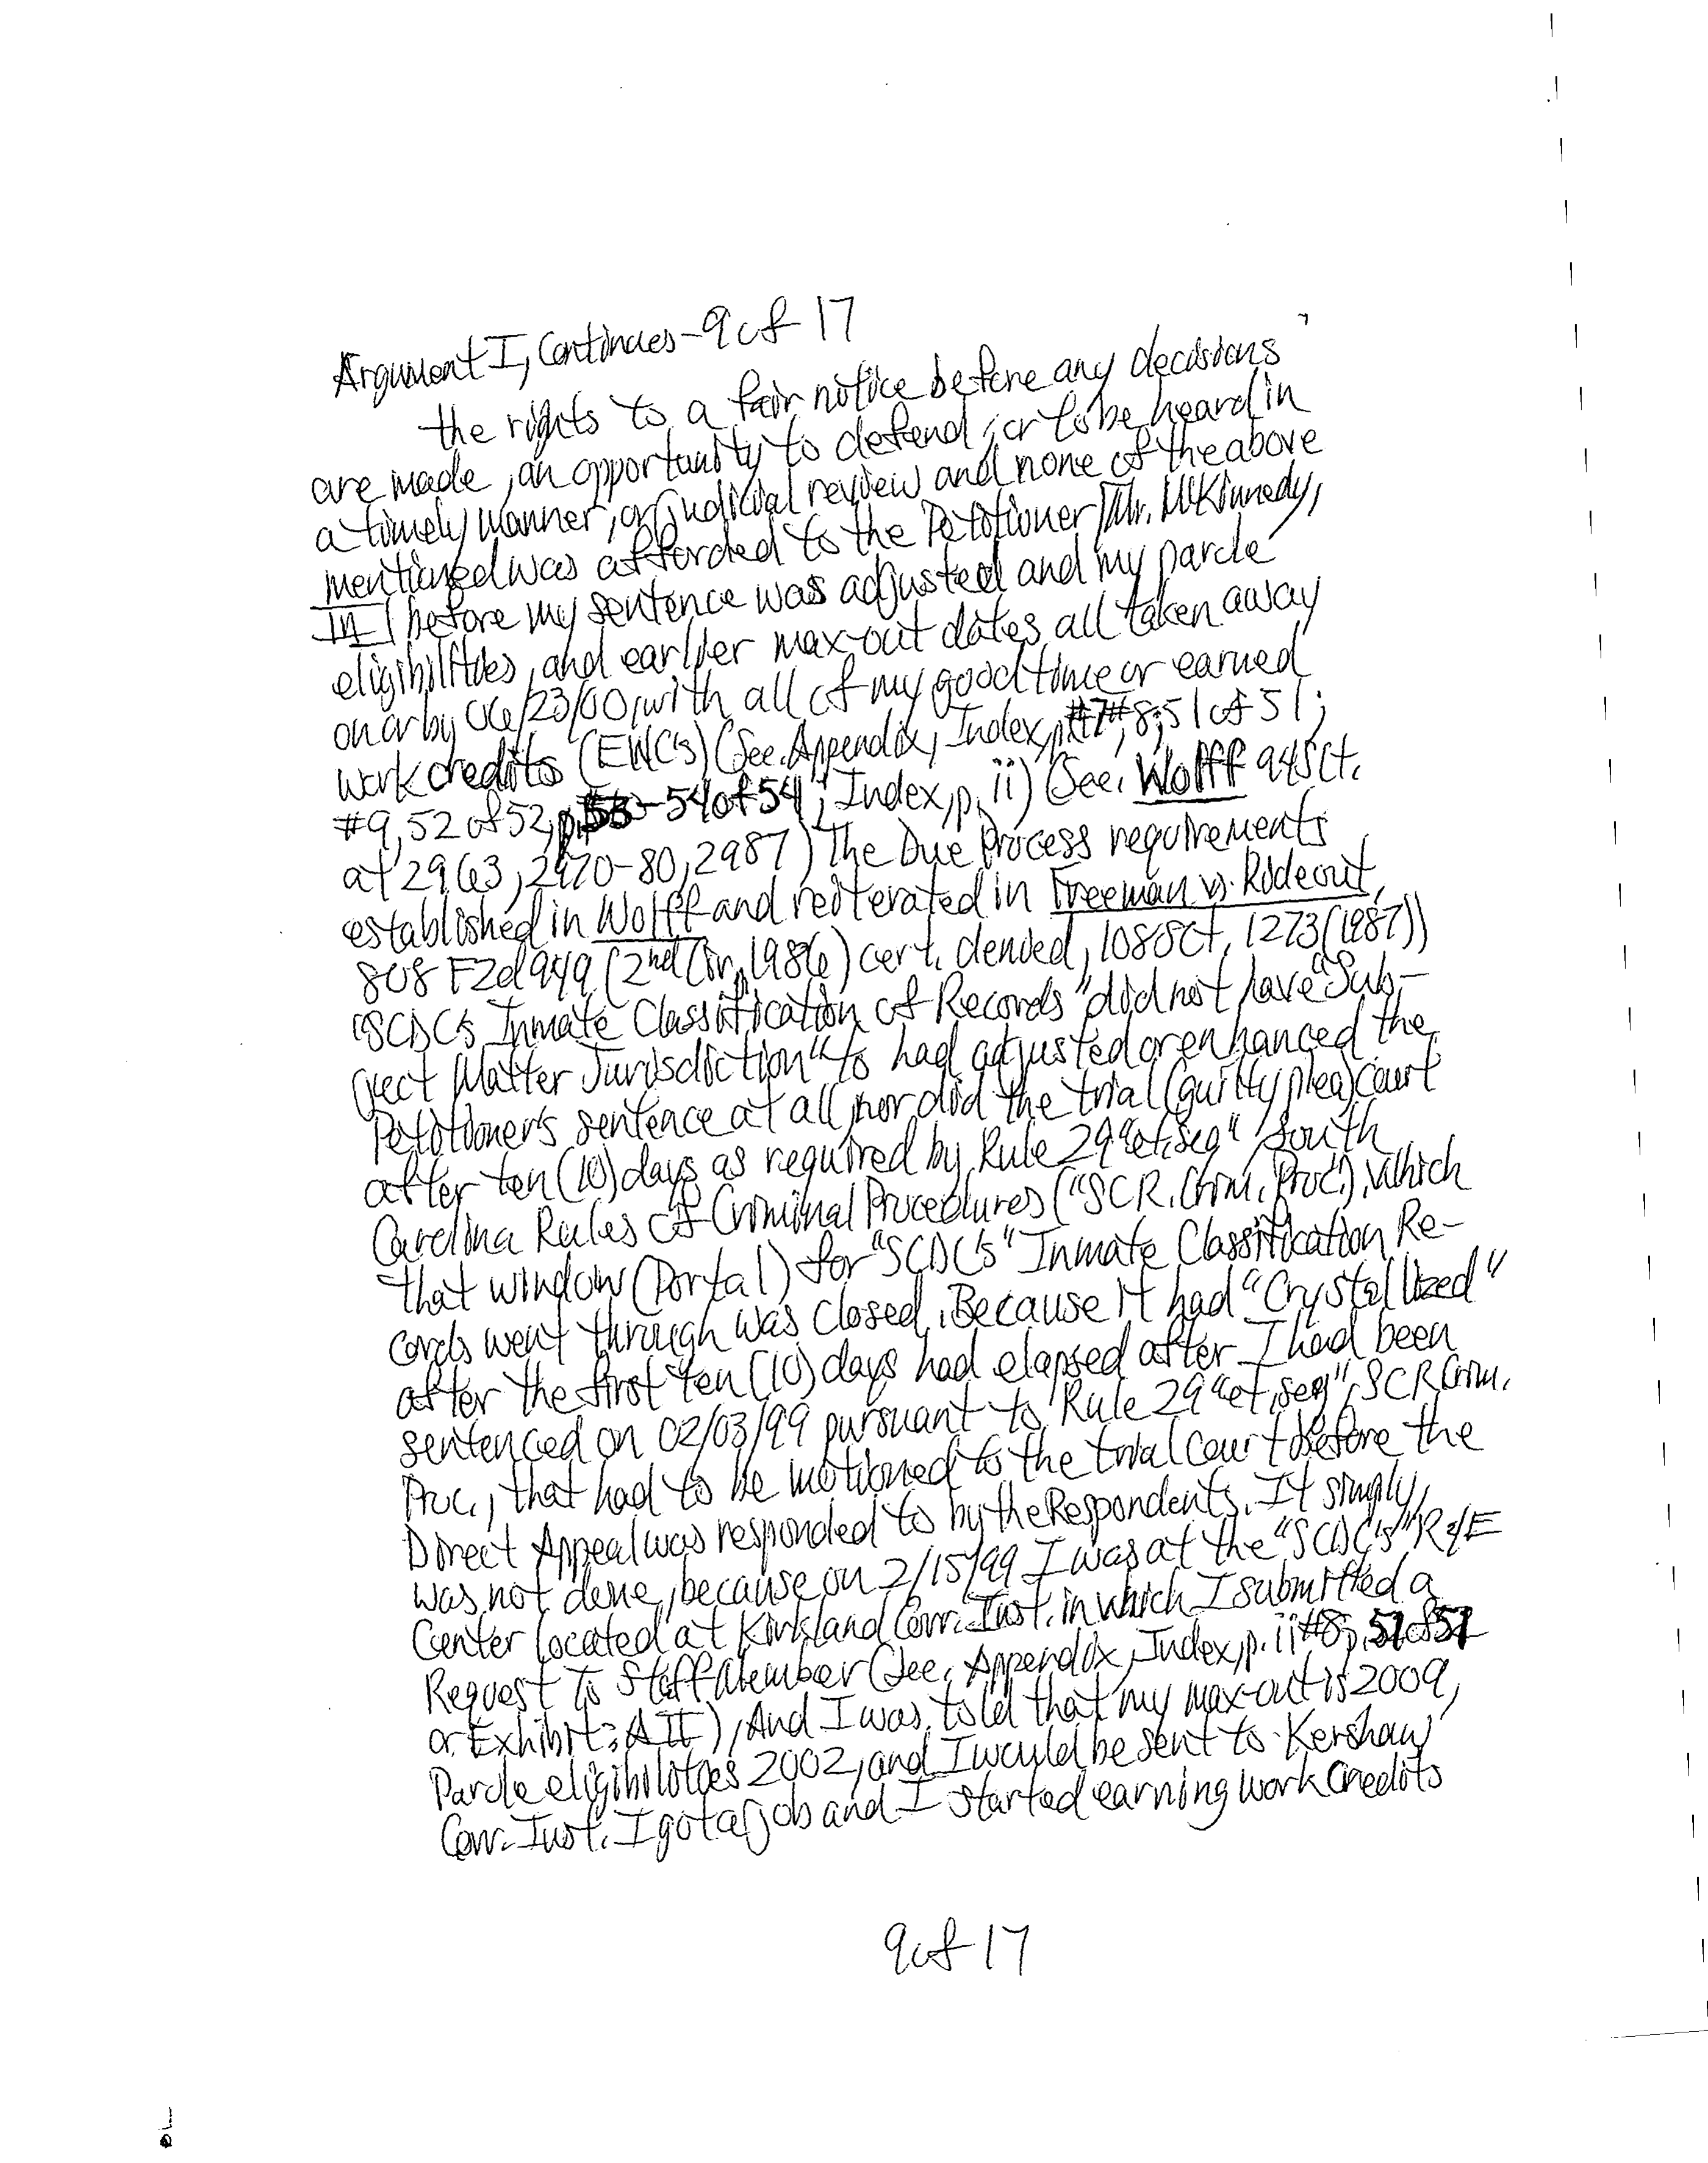 Argument I, Continues-9 of 17
the rights to a fair notice before any decisions
are made, an opportunity to defend, or to be heard in
a timely manner, or judicial review and none of the above
mentioned was afforded to the Petitioner/Mr. McKinnedy,
III/before my sentence was adjusted and my parole
eligibilities, and earlier max-out dates, all taken away
on or by 06/23/00, with all of my good time or earned
work credits (EWC's) (See. Appendix, Index, p. #7#, 8, 51 of 51;
#9, 52 of 52, p. 53-54 of 54; Index, p. ii) (See. Wolff 94 S Ct.
at 2963, 2970-80, 2987) The Due Process requirements
established in Wolff and reiterated in Freeman v. Rideout,
808 F2d 949 (2nd Cir. 1986) cert. denied, 108 S Ct. 1273 (1987))
"SCDC's Inmate Classification of Records" did not have "Sub-
ject Matter Jurisdiction" to had adjusted or enhanced the
Petitioner's sentence at all, nor did the trial (guilty plea) court
after ten (10) days as required by Rule 29 "et, seq" South
Carolina Rules of Criminal Procedures ("SCR. Crim. Proc."), Which
that window (Portal) for "SCDC's" Inmate Classification Re-
cords went through was closed. Because it had "Crystallized"
after the first ten (10) days had elapsed after I had been
sentenced on 02/03/99 pursuant to Rule 29 "et, seq", SCR Crim.
Proc., that had to be motioned to the trial court before the
Direct Appeal was responded to by the Respondents. It simply,
was not done, because on 2/15/99 I was at the "SCDC's" R&E
Center located at Kirkland Corr. Inst. in which I submitted a
Request To Staff Member (See. Appendix, Index, p. ii #8, p. 51 of 51
or Exhibit: A II), And I was told that my max-out is 2009,
Parole eligibilities 2002, and I would be sent to Kershaw
Corr. Inst. I got a job and I started earning work credits
9 of 17